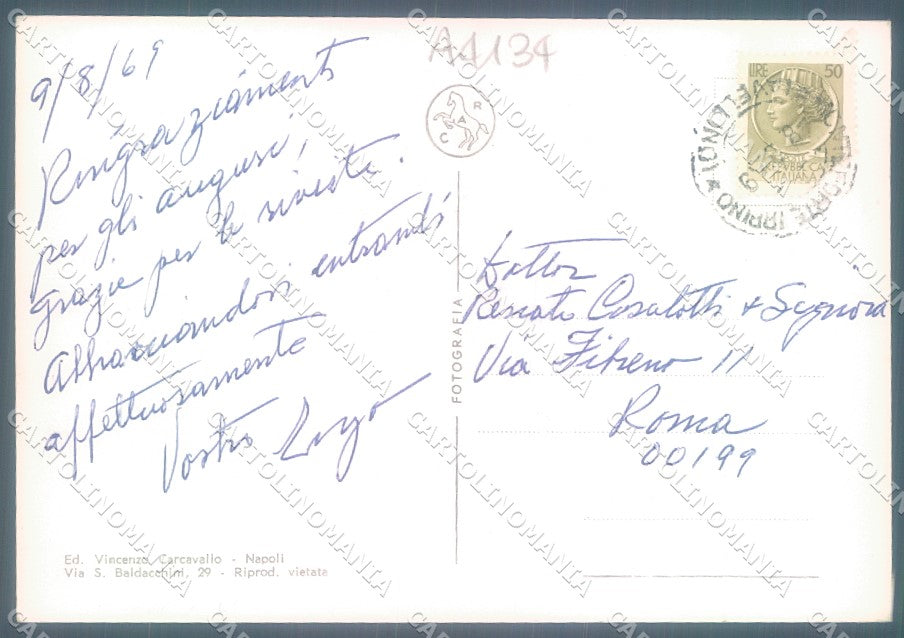 A4134
9/8/69
Ringraziamenti
per gli auguri,
grazie per le riviste.
Abbracciandovi entrambi
affettuosamente
Vostro
C A R
LIRE 50
ITALIANA
IRPINO
Dottor
Renato Casalotti + Signora
Via Fibreno 11
Roma
00199
FOTOGRAFIA
Ed. Vincenzo Carcavallo - Napoli
Via S. Baldacchini, 29 - Riprod. vietata
CARTOLINOMANIA